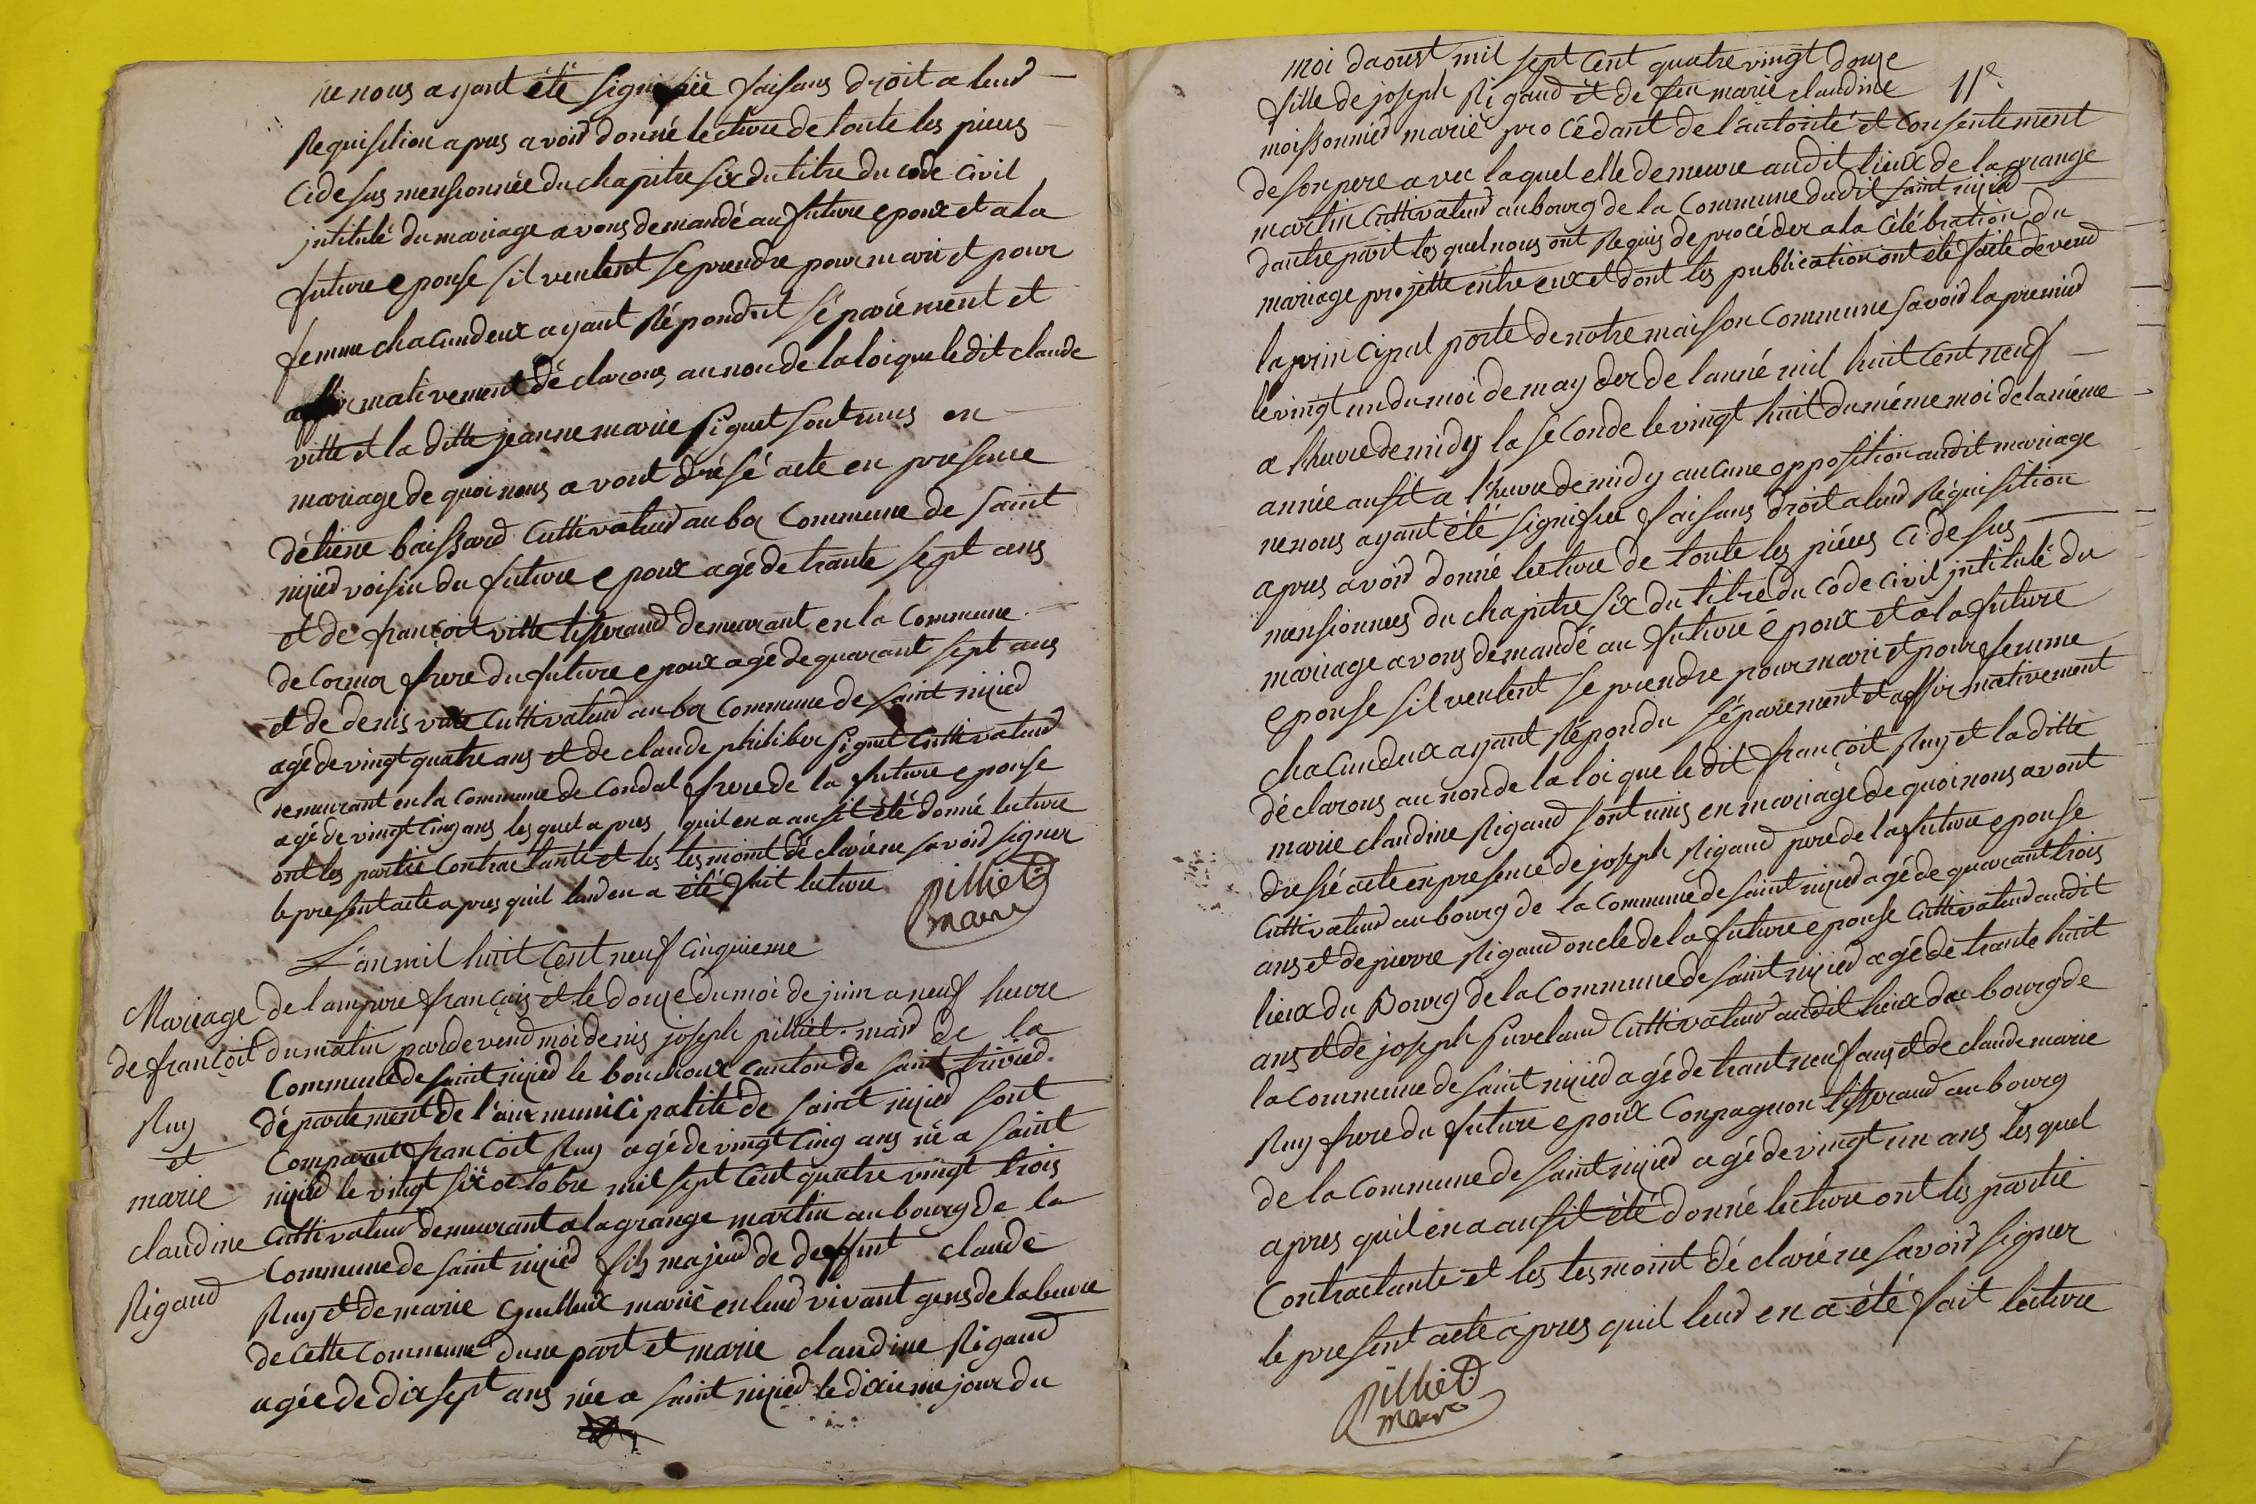 ne nous ayant été signifiée faisans droit a leur
Requisition apres avoir donné lecture de toute les pieces
ci desus mensionnée du chapitre six du titre du code civil
intitulé du mariage avons demandé au future epoux et a la
future epouse sil veulent se prendre pour mari et pour
femme chacun deux ayant Répondut séparément et
affirmativement déclarons au non de la loi que le dit claude
vitte et la ditte jeanne marie piguet sont unis en
mariage de quoi nous avont drésé acte en presence
détiene boissard Cuttivateur au bos Commune de Saint
nizied voisin du future epoux agé de trante sept ans
et de françoit vitte tisserand demeurant en la Commune
de Cormos frere du future epoux agé de quarant sept ans
et de denis vitte Cuttivateur au bos Commune de saint nizied
agé de vingt quatre ans et de claude philiber piguet Cuttivateur
demeurant en la Commune de Condal frere de la future epouse
agé de vingt cinq ans les quel apres quil en a ausit été donné lecture
ont les partie Contractante et les tesmoint déclaré ne savoir signer
le present acte apres quil leur en a été fait lecture
pilliet
maire
L'an mil huit Cent neuf cinquieme
Mariage de françoit Ruy et marie claudine Rigaud
de lampire français et le douze du moi de juin a neuf heure
du matin pardevend moi denis joseph pilliet maire de la
Commune de saint nizied le bouchoux canton de saint trivied
département de l'ain municipalité de saint nizied sont
Comparut françoit Ruy agé de vingt cinq ans né a saint
nizied le vingt six octobre mil sept cent quatre vingt trois
Cuttivateur demeurant a la grange martin au bourg de la
Commune de saint nizied fils majeur de deffunt claude
Ruy et de marie Guilleux marié en leur vivant gens de labeure
de cette Commune dune part et marie claudine Rigaud
agée de dix sept ans née a saint nizied le dixieme jour du
11e
moi daoust mil sept Cent quatre vingt douze
fille de joseph Rigaud et de feu marie claudine
moissonnier marié procédant de l'autorité et Consentement
de son pere avec laquel elle demeure au dit lieux de la grange
martin Cuttivateur au bourg de la Commune dudit saint nizied
dautre part les quel nous ont Requis de procéder a la Célébration du
mariage projetté entre eux et dont les publication ont été faite devend
la principal porte de notre maison Commune savoir la premier
le vingt un du moi de may der de lanné mil huit Cent neuf
a lheure de midy la seconde le vingt huit du méme moi de la méme
année ausit a lheure de midy aucune opposition audit mariage
ne nous ayant été signifiee faisans droit a leur Réquisition
apres avoir donné lecture de toute les piéces ci desus
mensionnees du chapitre six du titre du code civil intitulé du
mariage avons demandé au future époux et a la future
epouse sil veulent se prendre pour mari et pour femme
chacun deux ayant Répondu séparement et affirmativement
déclarons au non de la loi que le dit françoit Ruy et la ditte
marie claudine Rigaud sont unis en mariage de quoi nous avont
dressé acte en presence de joseph Rigaud pere de la future epouse
Cuttivateur au bourg de la Commune de saint nizied agé de quarant trois
ans et de pierre Rigaud oncle de la future epouse Cuttivateur audit
lieux du Bourg de la Commune de saint nizied agé de trante huit
ans et de joseph puveland Cuttivateur audit lieux du bourg de
la Commune de saint nizied agé de trant neuf ans et de claude marie
Ruy frere du future epoux Conpagnon tisserand au bourg
de la Commune de saint nizied agé de vingt un ans les quel
apres quil en a ausit été donné lecture ont les partie
Contractante et les tesmoint déclaré ne savoir signer
le present acte apres quil leur en a été fait lecture
pilliet
maire